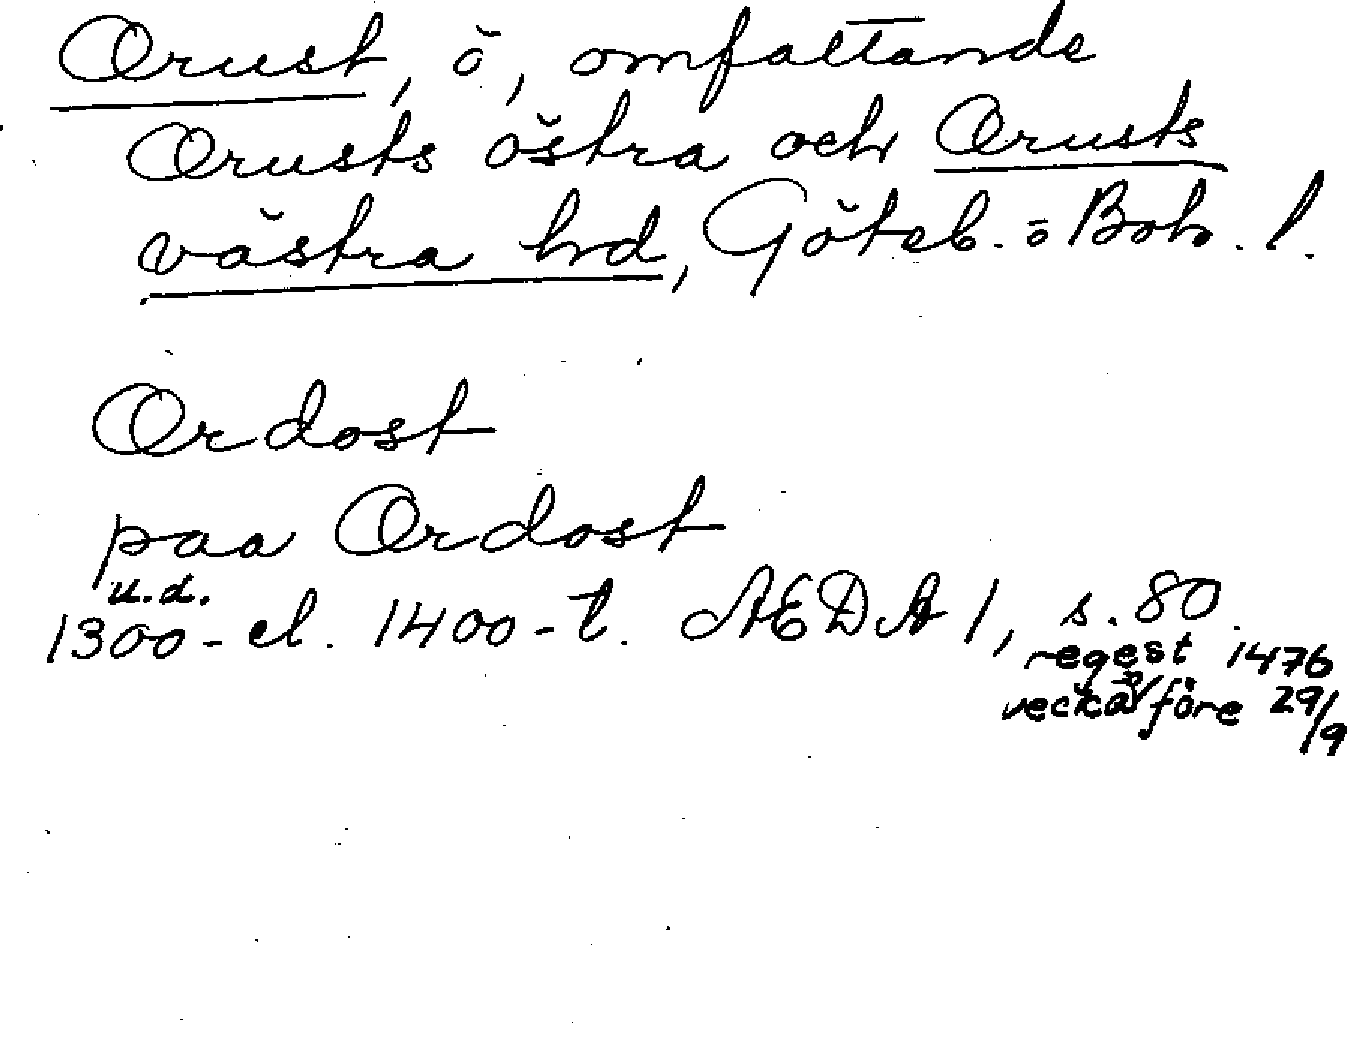 Orust, ö, omfattande
Orusts östra och Orusts
västra hd, Göteb. o Boh. l.
Ordost
paa Ordost
u.d.
1300- el. 1400-t. AEDA 1, s. 80.
regest 1476
vecka före 29/9